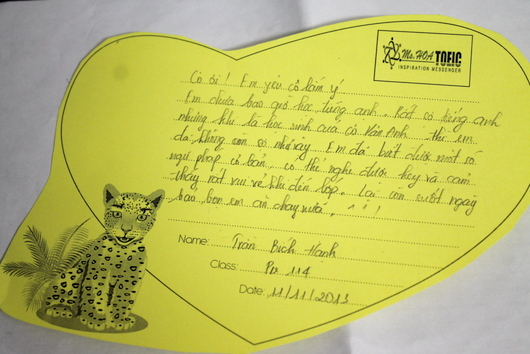 Ms. HOA TOEIC
INSPIRATION MESSENGER
Cô ơi! Em yêu cô lắm ý
Em chưa bao giờ học tiếng anh. Rất sợ tiếng anh
nhưng khi là học sinh của cô Vân Anh thì em
đã không còn sợ như vậy. Em đã biết được một số
ngữ pháp cơ bản, có thể nghe được hey và cảm
thấy rất vui vẻ khi đến lớp. Lại còn suốt ngày
bao bọn em ăn chay nữa. ^^!
Name: Trần Bích Hạnh
Class: Pre 114
Date: 11/11/2013